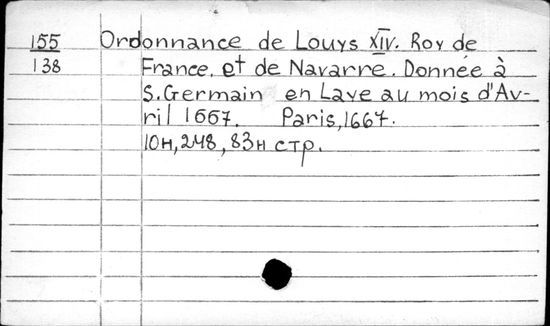 155 Ordonnance de Louys XIV. Roy de
138 France, et de Navarre. Donnée à
S. Germain en Laye au mois d'Av-
ril 1667. Paris, 1667.
10н, 248, 83н стр.